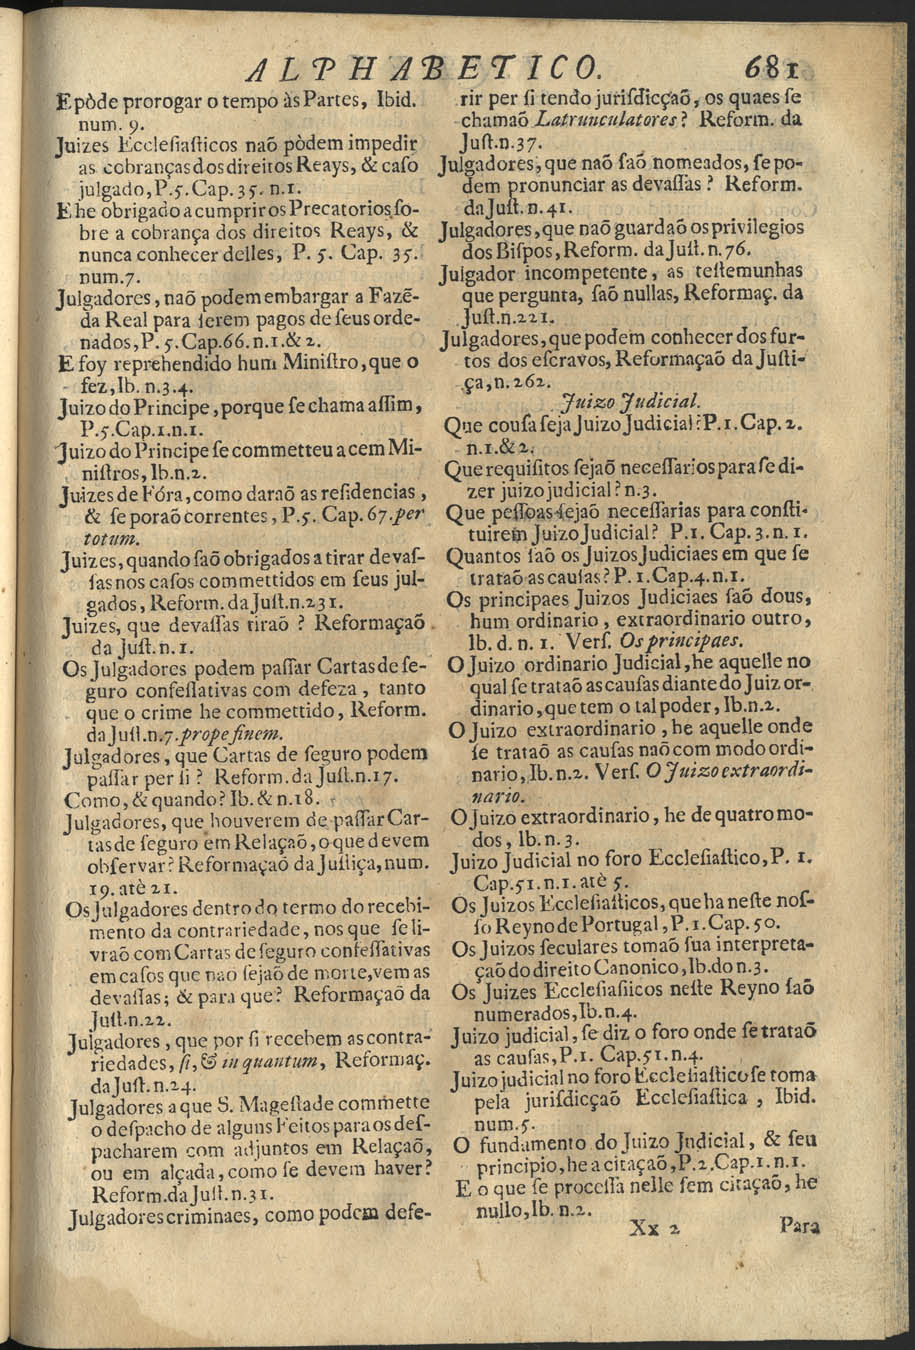 ALPHABETICO. 681
E pòde prorogar o tempo às Partes, Ibid.
num. 9.
Juizes Ecclesiasticos naõ pòdem impedir
as cobranças dos direitos Reays, & caso
julgado, P.5. Cap. 35. n.1.
E he obrigado a cumprir os Precatorios so-
bre a cobrança dos direitos Reays, &
nunca conhecer delles, P. 5. Cap. 35.
num.7.
Julgadores, naõ podem embargar a Fazẽ-
da Real para serem pagos de seus orde-
nados, P. 5. Cap.66. n.1.& 2.
E foy reprehendido hum Ministro, que o
fez, Ib. n.3.4.
Juizo do Principe, porque se chama assim,
P.5.Cap.1.n.1.
Juizo do Principe se commetteu a cem Mi-
nistros, Ib.n.2.
Juizes de Fóra, como daraõ as residencias,
& se poraõ correntes, P.5. Cap. 67. per
totum.
Juizes, quando saõ obrigados a tirar devas-
sas nos casos commettidos em seus jul-
gados, Reform. da Just.n.231.
Juizes, que devassas tiraõ ? Reformaçaõ
da Just. n. 1.
Os Julgadores podem passar Cartas de se-
guro confessativas com defeza, tanto
que o crime he commettido, Reform.
da Just.n.7. prope finem.
Julgadores, que Cartas de seguro podem
passar per si ? Reform. da Just.n.17.
Como, & quando? Ib. & n.18.
Julgadores, que houverem de passar Car-
tas de seguro em Relaçaõ, o que devem
observar? Reformaçaõ da Justiça, num.
19. atè 21.
Os Julgadores dentro do termo do recebi-
mento da contrariedade, nos que se li-
vraõ com Cartas de seguro confessativas
em casos que naõ sejaõ de morte, vem as
devassas; & para que? Reformaçaõ da
Just.n.22.
Julgadores, que por si recebem as contra-
riedades, si, & in quantum, Reformaç.
da Just. n.24.
Julgadores a que S. Magestade commette
o despacho de alguns Feitos para os des-
pacharem com adjuntos em Relaçaõ,
ou em alçada, como se devem haver?
Reform. da Just. n.31.
Julgadores criminaes, como podem defe-
rir per si tendo jurisdicçaõ, os quaes se
chamaõ Latrunculatores? Reform. da
Just.n.37.
Julgadores, que naõ saõ nomeados, se po-
dem pronunciar as devassas ? Reform.
da Just. n. 41.
Julgadores, que naõ guardaõ os privilegios
dos Bispos, Reform. da Just. n.76.
Julgador incompetente, as testemunhas
que pergunta, saõ nullas, Reformaç. da
Just.n.221.
Julgadores, que podem conhecer dos fur-
tos dos escravos, Reformaçaõ da Justi-
ça, n. 262.
Juizo Judicial.
Que cousa seja Juizo Judicial? P.1. Cap. 2.
n.1.&2.
Que requisitos sejaõ necessarios para se di-
zer juizo judicial? n.3.
Que pessoas sejaõ necessarias para consti-
tuirem Juizo Judicial? P.1. Cap. 3. n. 1.
Quantos saõ os Juizos Judiciaes em que se
trataõ as causas? P. 1.Cap.4.n.1.
Os principaes Juizos Judiciaes saõ dous,
hum ordinario, extraordinario outro,
Ib. d. n. 1. Vers. Os principaes.
O Juizo ordinario Judicial, he aquelle no
qual se trataõ as causas diante do Juiz or-
dinario, que tem o tal poder, Ib.n.2.
O Juizo extraordinario, he aquelle onde
se trataõ as causas naõ com modo ordi-
nario, Ib. n.2. Vers. O Juizo extraordi-
nario.
O Juizo extraordinario, he de quatro mo-
dos, Ib. n. 3.
Juizo Judicial no foro Ecclesiastico, P. 1.
Cap.51.n.1. atè 5.
Os Juizos Ecclesiasticos, que ha neste nos-
so Reyno de Portugal, P.1. Cap. 50.
Os Juizos seculares tomaõ sua interpreta-
çaõ do direito Canonico, Ib.do n.3.
Os Juizes Ecclesiasiicos neste Reyno saõ
numerados, Ib. n.4.
Juizo judicial, se diz o foro onde se trataõ
as causas, P.1. Cap.51.n.4.
Juizo judicial no foro Ecclesiastico se toma
pela jurisdicçaõ Ecclesiastica, Ibid.
num.5.
O fundamento do Juizo Judicial, & seu
principio, he a citaçaõ, P.2.Cap.1. n.1.
E o que se processa nelle sem citaçaõ, he
nullo, Ib. n.2.
Xx 2 Para